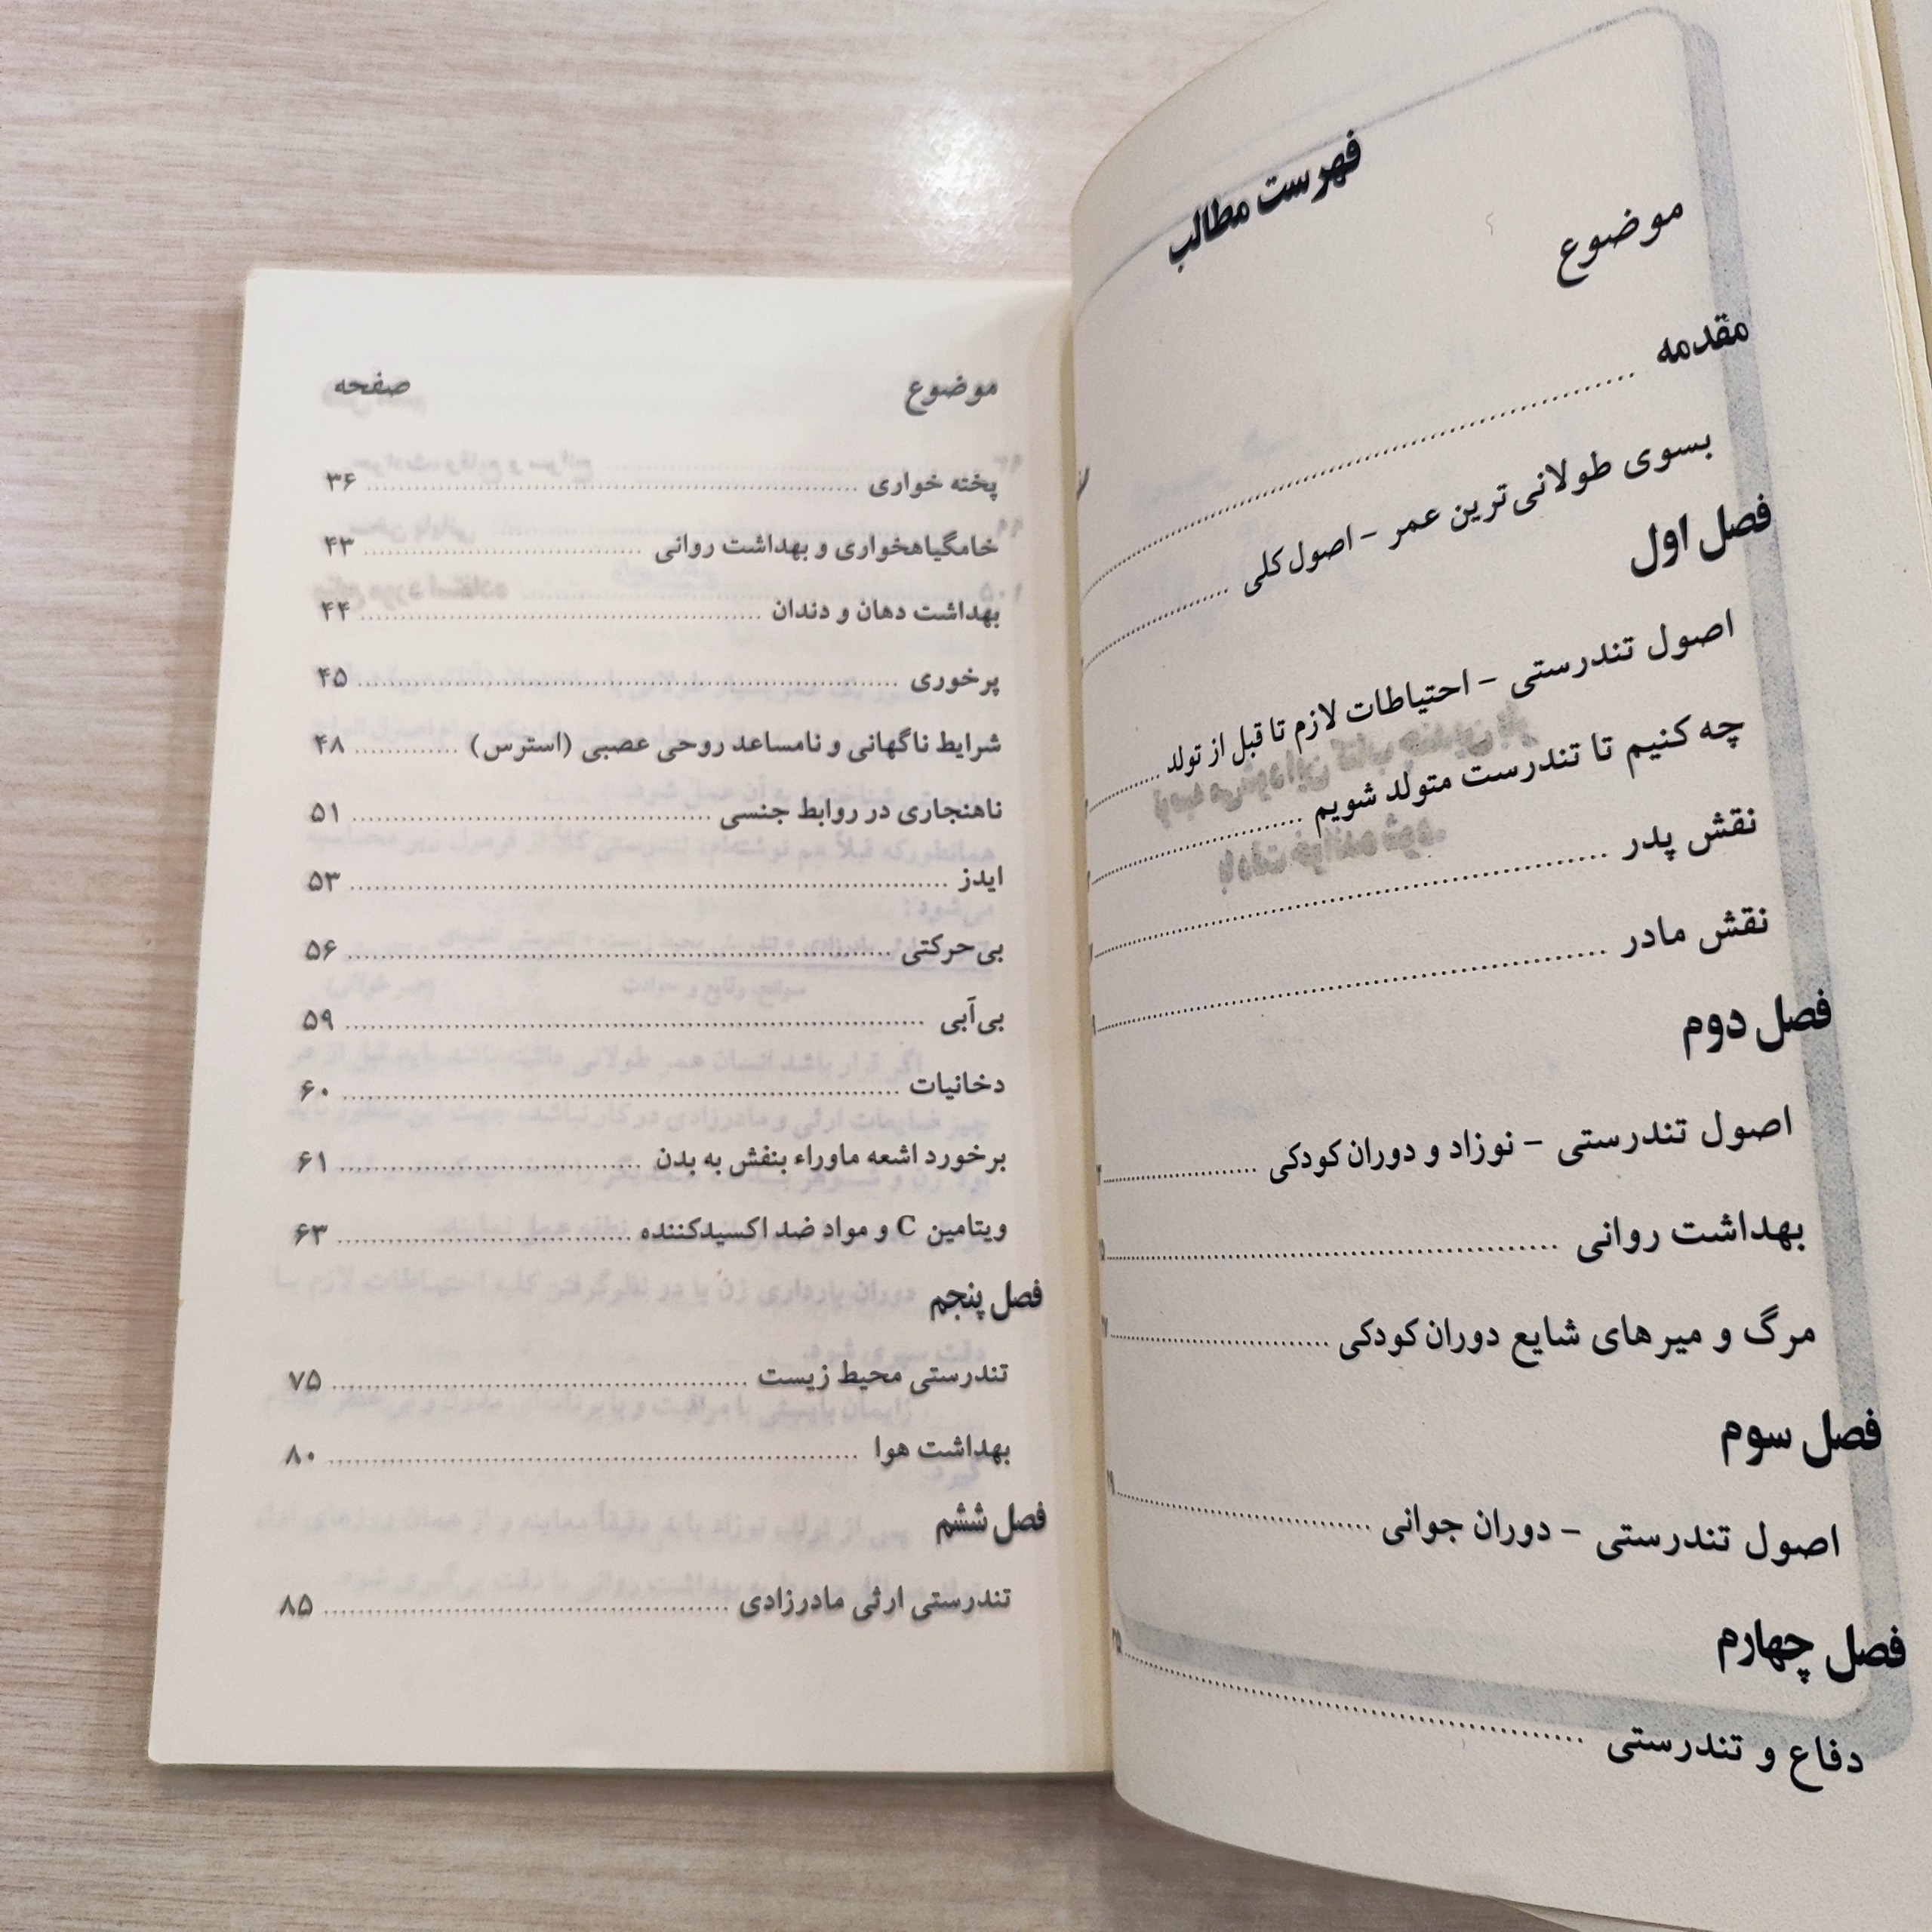 فهرست مطالب
موضوع
مقدمه ........................................
بسوی طولانی‌ترین عمر - اصول کلی ....................
فصل اول
اصول تندرستی - احتیاطات لازم تا قبل از تولد ..........
چه کنیم تا تندرست متولد شویم ....................
نقش پدر ........................................
نقش مادر ........................................
فصل دوم
اصول تندرستی - نوزاد و دوران کودکی ....................
بهداشت روانی ........................................
مرگ و میرهای شایع دوران کودکی ....................
فصل سوم
اصول تندرستی - دوران جوانی ....................
فصل چهارم
دفاع و تندرستی ........................................
موضوع صفحه
پخته خواری ........................................ ۳۶
خامگیاهخواری و بهداشت روانی .................... ۴۳
بهداشت دهان و دندان .............................. ۴۴
پرخوری ........................................ ۴۵
شرایط ناگهانی و نامساعد روحی عصبی (استرس) ............. ۴۸
ناهنجاری در روابط جنسی .............................. ۵۱
ایدز ........................................ ۵۳
بی‌حرکتی ........................................ ۵۶
بی‌آبی ........................................ ۵۹
دخانیات ........................................ ۶۰
برخورد اشعه ماوراء بنفش به بدن .................... ۶۱
ویتامین C و مواد ضد اکسیدکننده .................... ۶۳
فصل پنجم
تندرستی محیط زیست .............................. ۷۵
بهداشت هوا ........................................ ۸۰
فصل ششم
تندرستی ارثی مادرزادی .............................. ۸۵